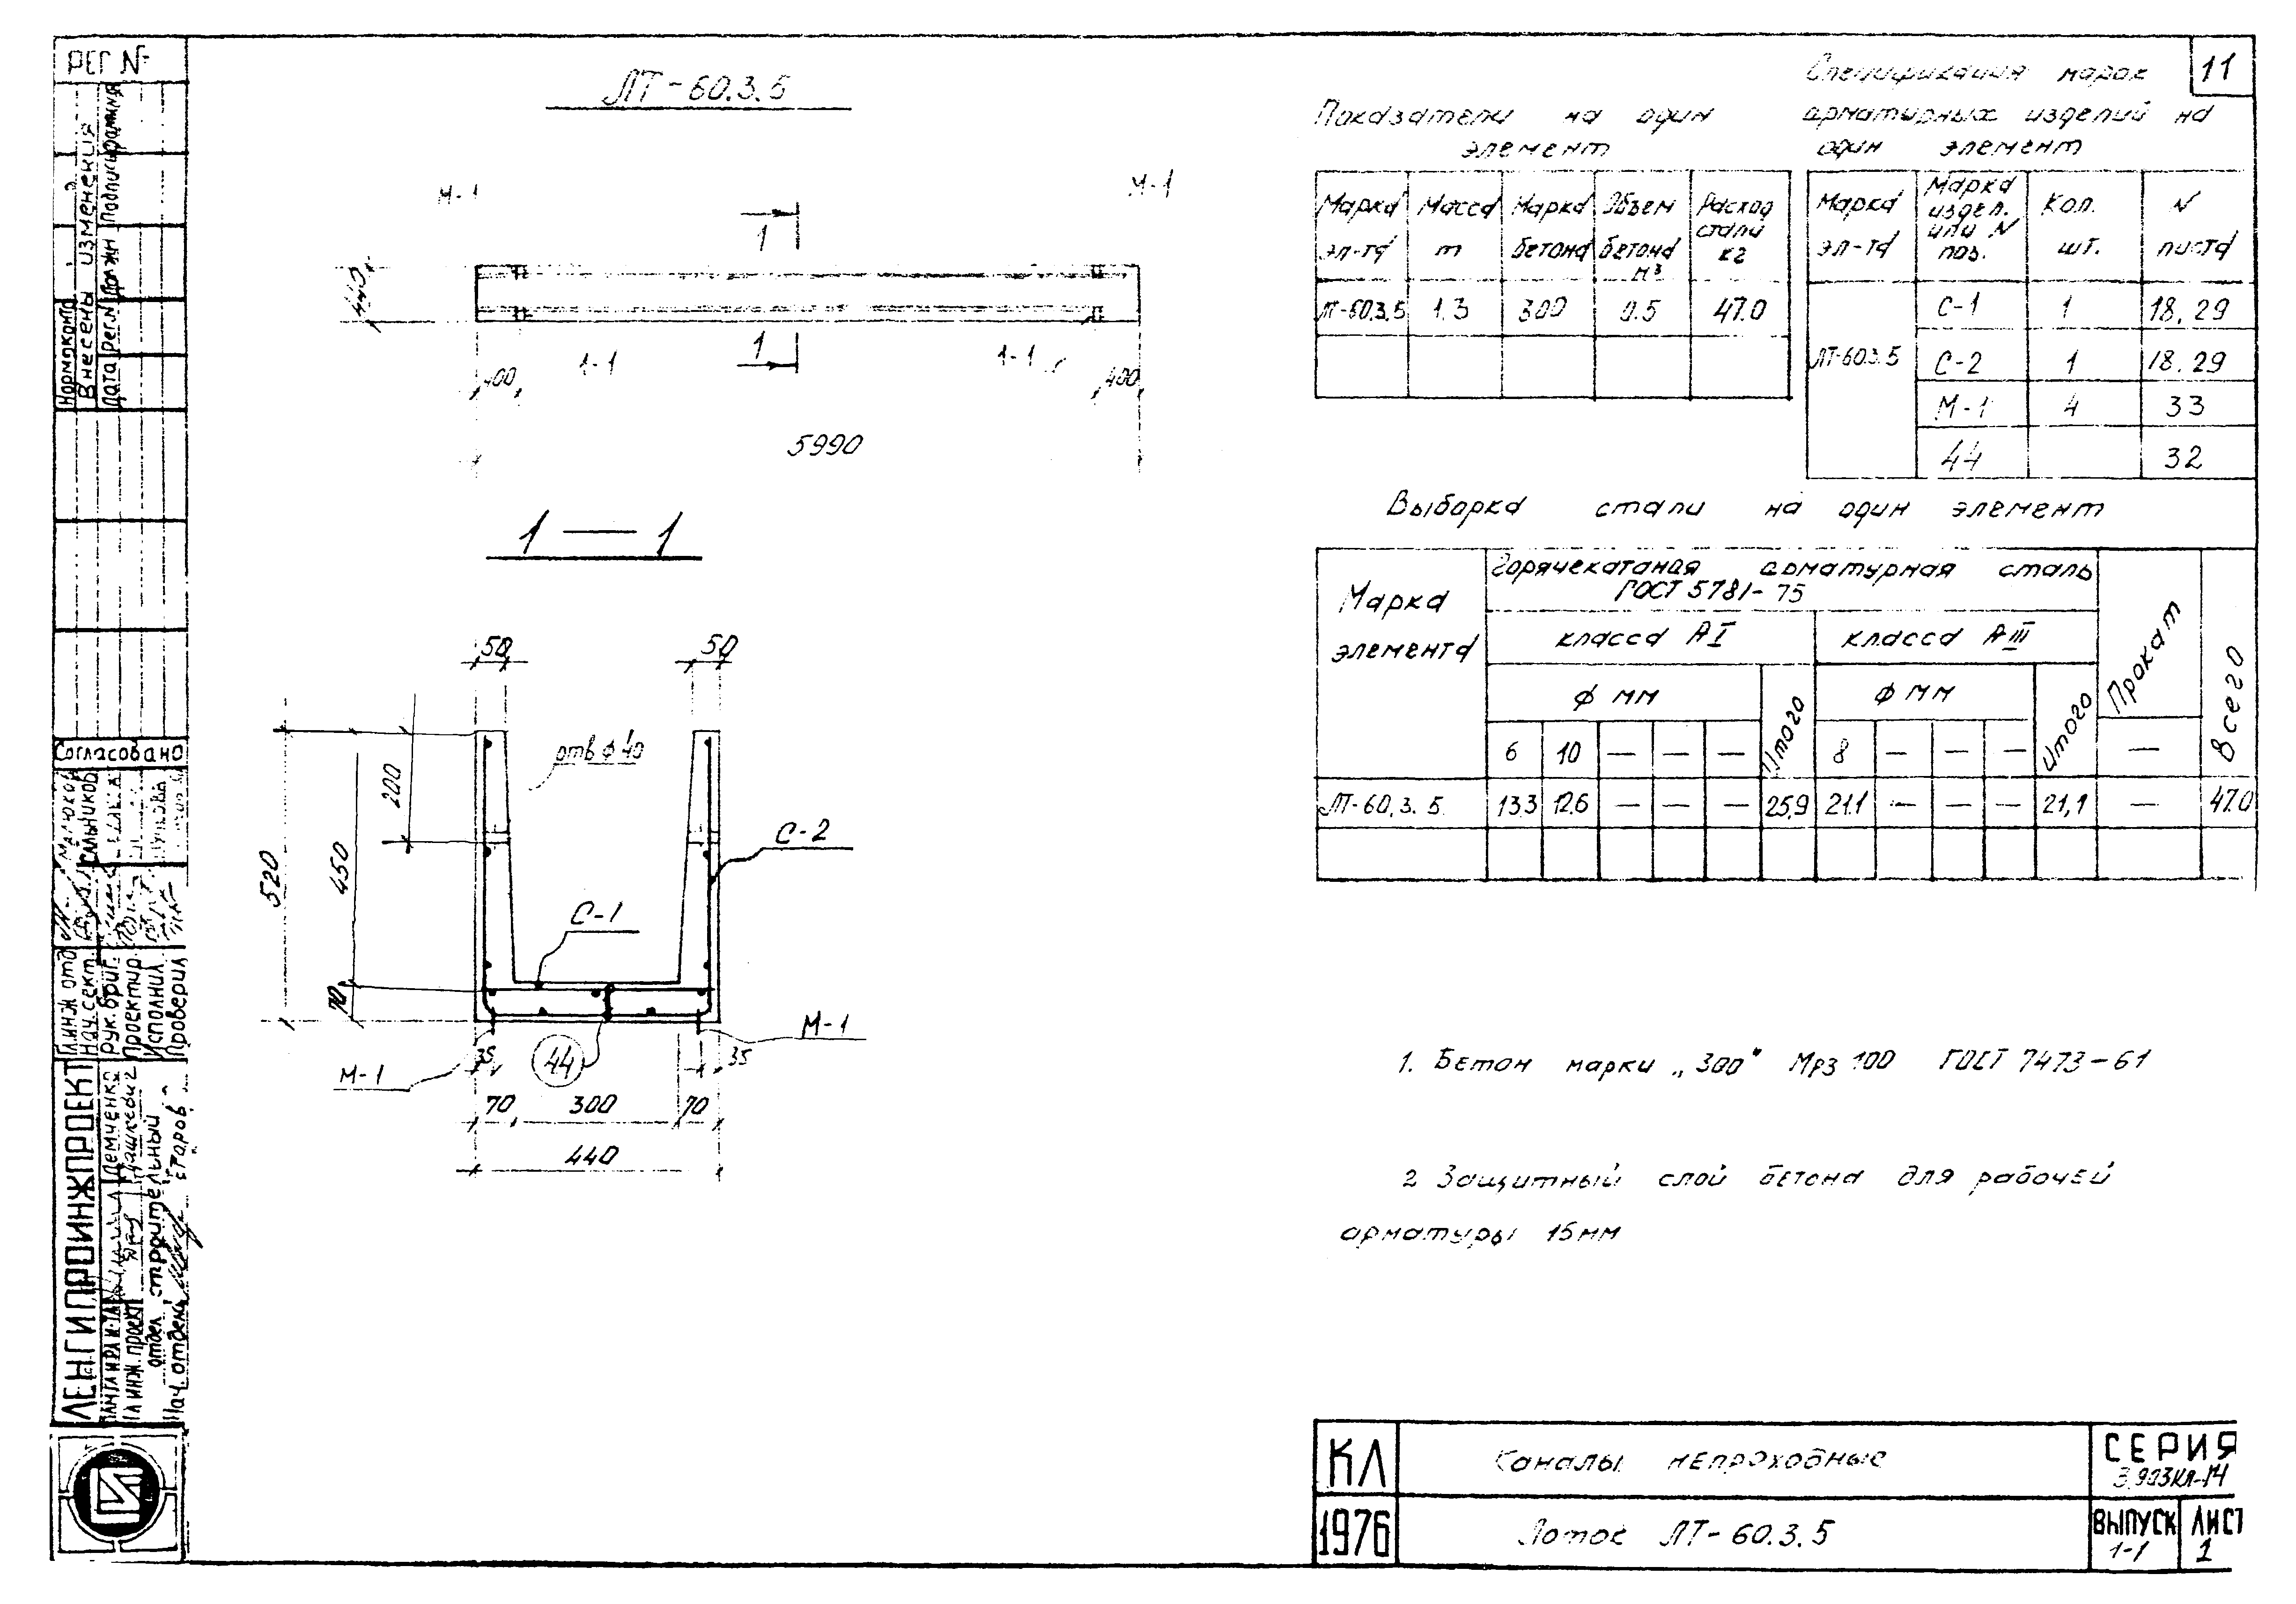 РЕГ №
11
ЛТ-60.3.5
М-1
М-1
1
440
1
1-1
1-1
400
400
5990
1 — 1
50
50
отв ф 40
200
520
450
70
С-2
С-1
М-1
М-1
35
44
35
70
300
70
440
Показатели на один
элемент
Марка эл-та
Масса т
Марка бетона
Объем бетона м³
Расход стали кг
ЛТ-60.3.5 1.3 300 0.5 47.0
Спецификация марок
арматурных изделий на
один элемент
Марка эл-та
Марка издел. или N поз.
Кол. шт.
N листа
ЛТ-60.3.5
С-1 1 18, 29
С-2 1 18, 29
М-1 4 33
44 32
Выборка стали на один элемент
Марка элемента
Горячекатаная арматурная сталь
ГОСТ 5781-75
класса АI
класса АIII
Прокат
Всего
ф мм
Итого
ф мм
Итого
6 10 — — —
8 — — —
—
ЛТ-60.3.5. 13.3 12.6 — — — 25,9 21.1 — — — 21,1 — 47.0
1. Бетон марки „300" Мрз 100 ГОСТ 7473-61
2 Защитный слой бетона для рабочей
арматуры 15мм
Нормоконтр
Внесены изменения
Дата Рег.N Должн Подпись
Согласовано
Гл.инж отд
Нач.сект.
Рук.бриг.
Проектир.
Исполнил
Проверил
ЛЕНГИПРОИНЖПРОЕКТ
Демченко
Гл инж. проект
отдел строительный
Нач. отдела
КЛ
1976
Каналы непроходные
Лоток ЛТ-60.3.5
СЕРИЯ
3.903КЛ-14
ВЫПУСК
1-1
ЛИСТ
1